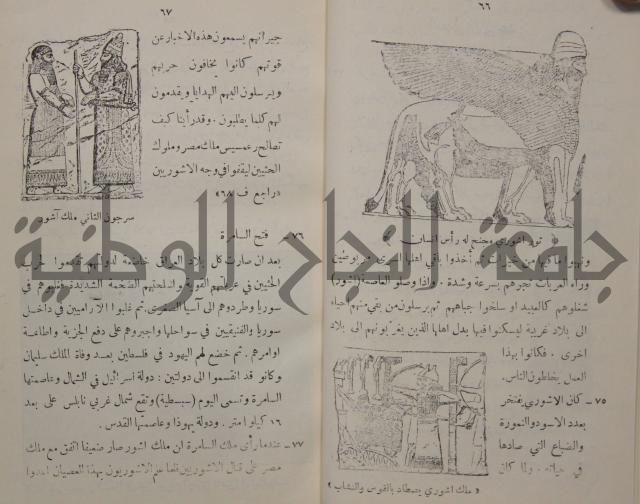 ٦٦
ثور اشوري مجنح له رأس انسان
ونهبوا ما فيها من خيرات ثم أخذوا باقي اهلها اسرى مربوطين
وراء العربات تجرهم بسرعة وشدة. واذا وصلوا العاصمة (اشور)
شغلوهم كالعبيد او سلخوا جباههم ثم يرسلون من بقي منهم حياء
الى بلاد غريبة ليسكنوا فيها بدل اهلها الذين يغربونهم الى بلاد
اخرى. فكانوا بهذا
العمل يخلطون الناس.
٧٥ – كان الاشوري يفتخر
بعدد الاسود والنمورة
والضباع التي صادها
في حياته. ولما كان
« ملك اشوري يصطاد بالقوس والنشاب »
٦٧
جيرانهم يسمعون هذه الاخبار عن
قوتهم كانوا يخافون حربهم
ويرسلون اليهم الهدايا ويقدمون
لهم كلما يطلبون. وقد رأينا كيف
تصالح رعمسيس ملك مصر وملوك
الحثيين ليقفوا في وجه الاشوريين
«راجع ف ٦٨»
سرجون الثاني ملك آشور
٧٦ – فتح السامرة
بعد ان صارت كل بلاد العراق خاضعة لدولتهم تقدموا
الحثيين في القوية واسلحتهم الضخمة الشديدة فغلبوهم في
سوريا وطردوهم الى آسيا الصغرى. ثم غلبوا الآراميين في داخل
سوريا والفنيقيين في سواحلها واجبروهم على دفع الجزية واطاعة
اوامرهم. ثم خضع لهم اليهود في فلسطين بعد وفاة الملك سليمان
وكانو قد انقسموا الى دولتين: دولة اسرائيل في الشمال وعاصمتها
السامرة وتسمى اليوم (سبسطية) وتقع شمال غربي نابلس على بعد
١٦ كيلو امتر. ودولة يهوذا وعاصمتها القدس.
٧٧ – عندما رأى ملك السامرة ان ملك اشور صار ضعيفا اتفق مع ملك
مصر على قتال الاشوريين فلما علم الاشوريون بهذا العصيان
جامعة النجاح الوطنية